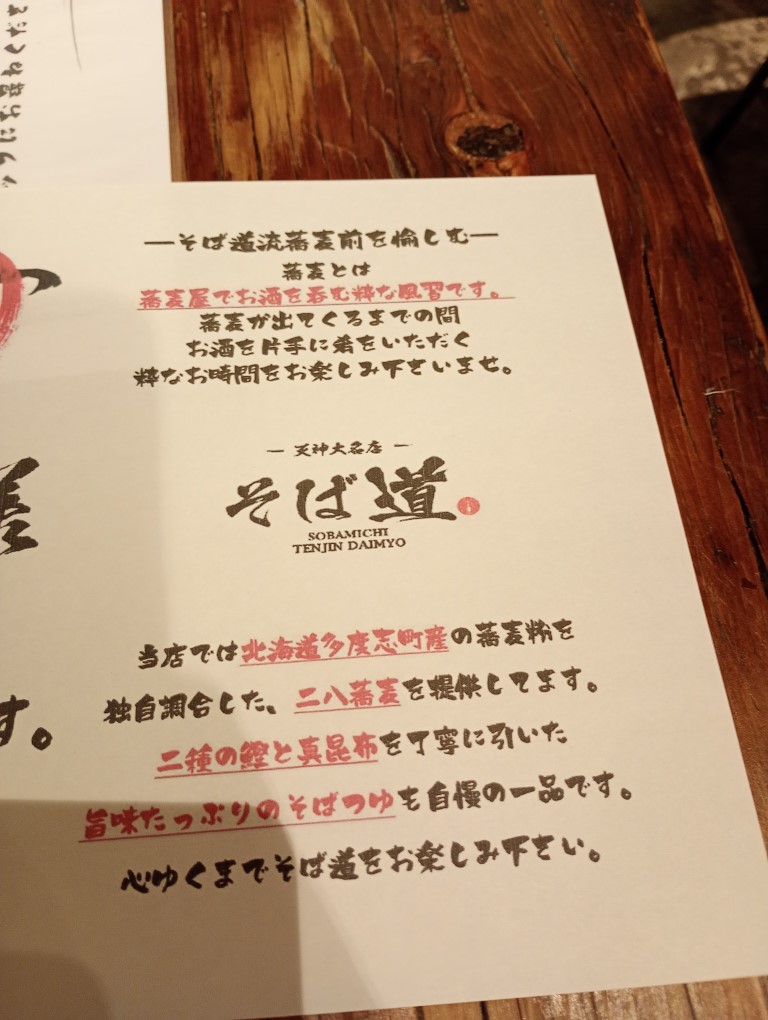 ーそば道流蕎麦前を愉しむー
蕎麦とは
蕎麦屋でお酒を呑む粋な風習です。
蕎麦が出てくるまでの間
お酒を片手に肴をいただく
粋なお時間をお楽しみ下さいませ。
ー 天神大名店 ー
そば道
SOBAMICHI
TENJIN DAIMYO
当店では北海道多度志町産の蕎麦粉を
独自調合した、二八蕎麦を提供してます。
二種の鰹と真昆布を丁寧に引いた
旨味たっぷりのそばつゆも自慢の一品です。
心ゆくまでそば道をお楽しみ下さい。
す。